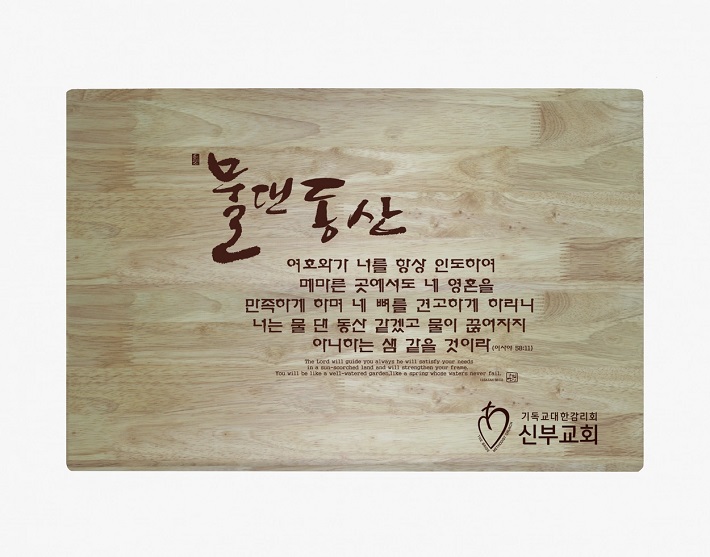 물댄동산
여호와가 너를 항상 인도하여
메마른 곳에서도 네 영혼을
만족하게 하며 네 뼈를 견고하게 하리니
너는 물 댄 동산 같겠고 물이 끊어지지
아니하는 샘 같을 것이라 (이사야 58:11)
The Lord will guide you always he will satisfy your needs
in a sun-scorched land and will strengthen your frame.
You will be like a well-watered garden,like a spring whose waters never fail.
기독교대한감리회
신부교회